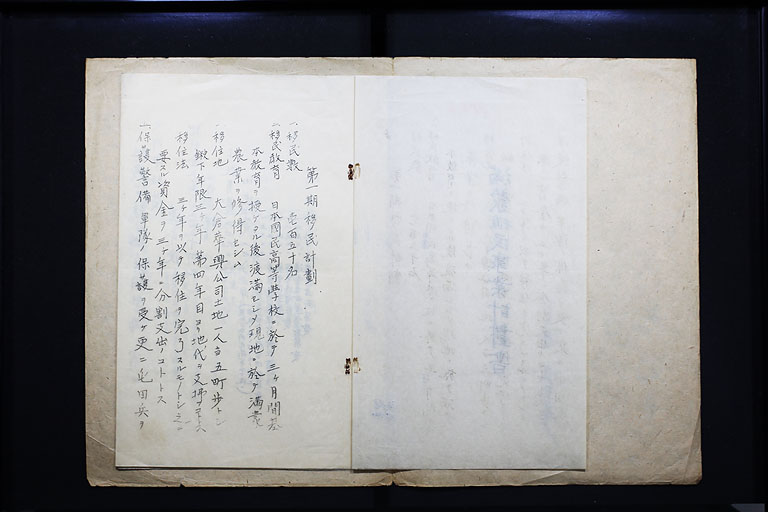 第一期移民計劃
一、移民数　壱百五十名
一、移民教育　日本國民高等學校ニ於テ三ヶ月間基
本教育ヲ授ケタル後渡満セシメ現地ニ於テ満蒙
農業ヲ修得セシム
一、移住地　大倉華興公司土地一人当五町歩トシ
鍬下年限三ヶ年第四年目ヨリ地代ヲ支拂フコトス
一、移住法　三ヶ年ヲ以テ移住ヲ完了スルモノトシ之ニ
要スル資金ヲ三ヶ年ニ分割支出ノコトトス
一、保護警備　軍隊ノ保護ヲ受ケ更ニ屯田兵ヲ